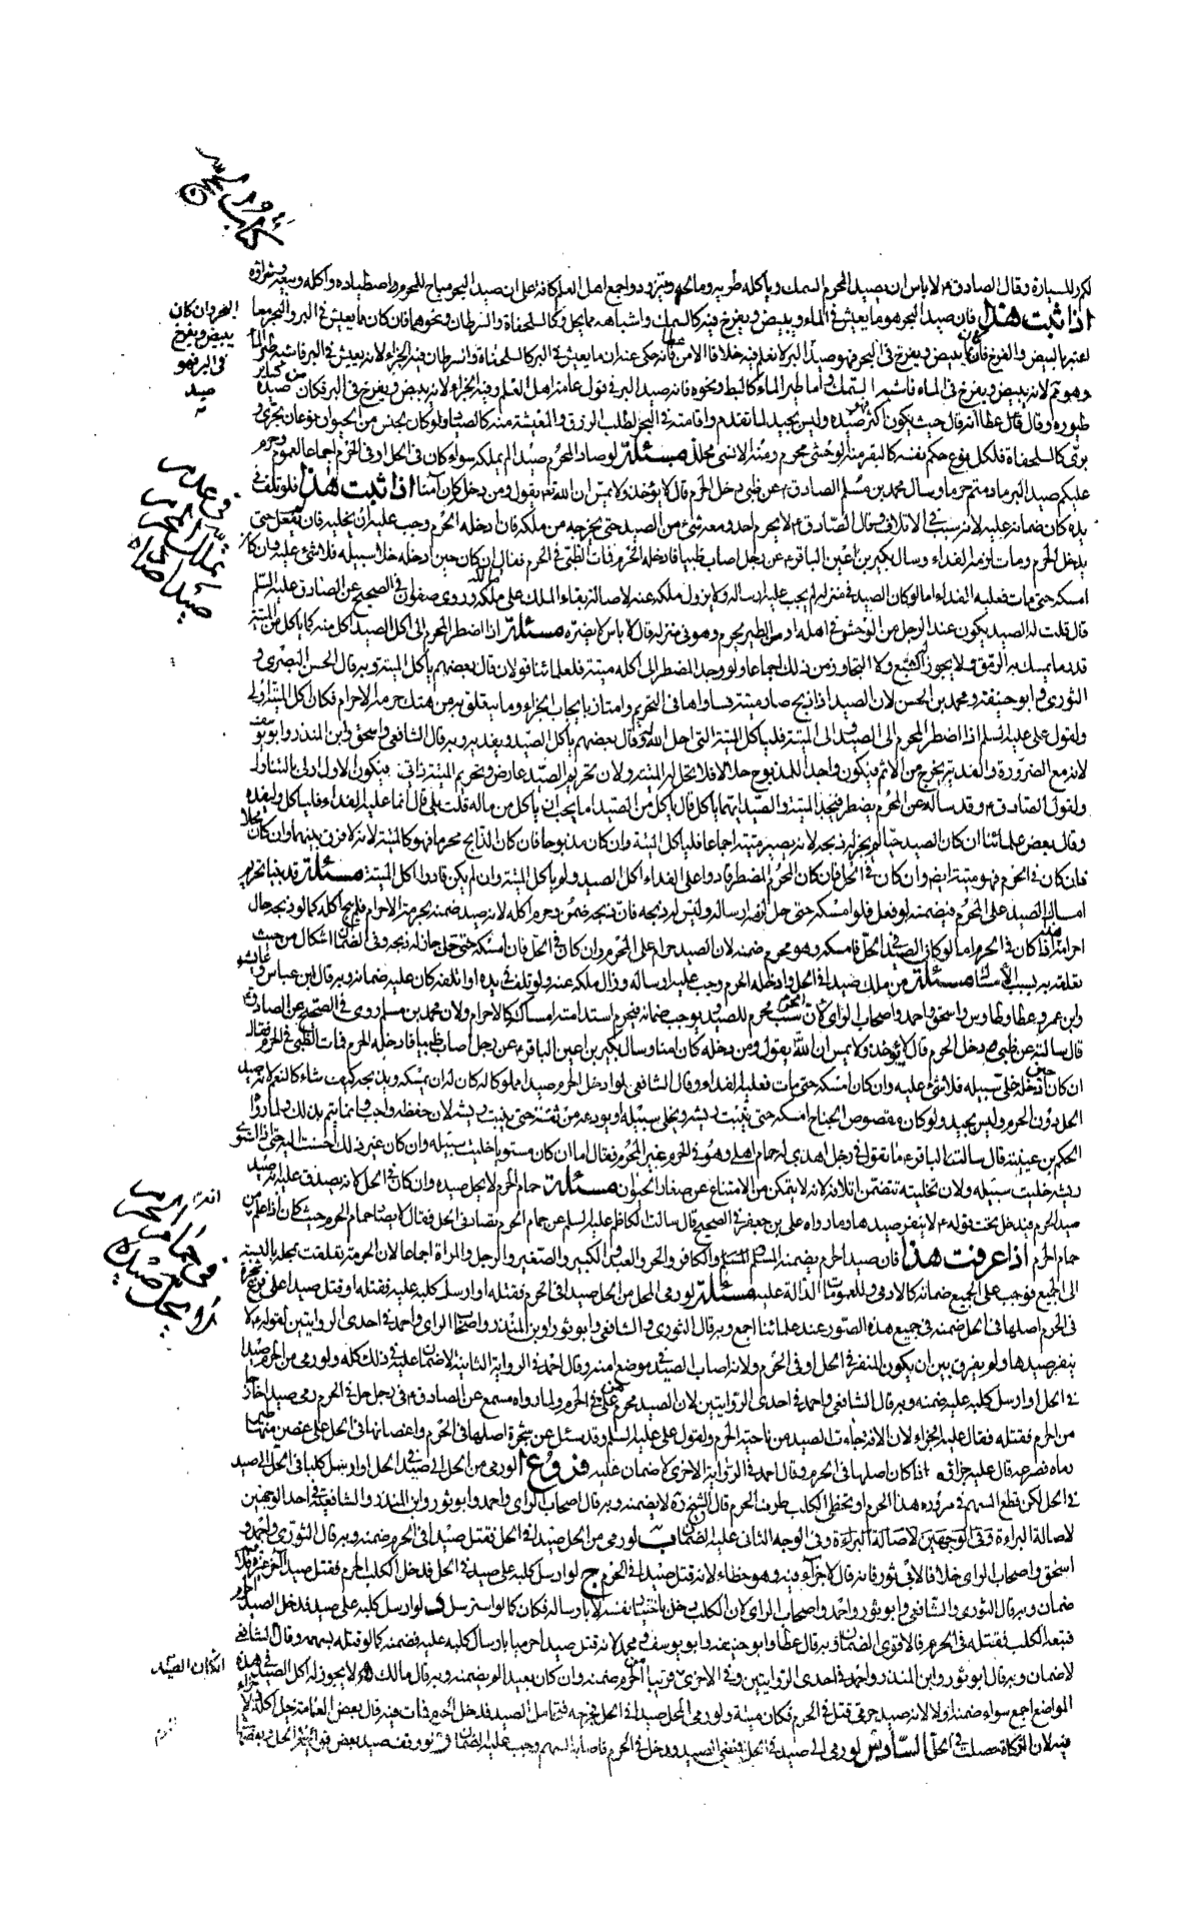 لكم وللسيارة وقال الصادق ع لا باس ان يصيد المحرم السمك وياكله طريه ومالحه ويتزود واجمع اهل العلم كافة على ان صيد البحر مباح للمحرم واصطياده واكله وبيعه وشراؤه
اذا ثبت هذا فان صيد البحر هو ما يعيش في الماء ويبيض ويفرخ فيه كالسمك واشباهه مما يحل وكالسلحفاة والسرطان ونحوهما فان كان مما يعيش في البر والبحر معا
اعتبر بالبيض والفرخ فان كان يبيض ويفرخ في البحر فهو صيد البحر لا نعلم فيه خلافا الا من عطا فانه حكى عنه ان ما يعيش في البر كالسلحفاة والسرطان فيه الجزاء لانه يعيش في البر فاشبه طير الماء
وهو لانه يبيض ويفرخ في الماء فاشبه السمك واما طير الماء كالبط ونحوه فانه صيد البر في قول عامة اهل العلم وفيه الجزاء لانه يبيض ويفرخ في البر فكان من صيده كساير
طيوره وقال عطا انه قال حيث يكون اكثر فهو صيده وليس بجيد لما تقدم واقامته في البحر لطلب الرزق والمعيشة منه كالصياد ولو كان لجنس من الحيوان نوعان بحري و
بري كالسلحفاة فلكل نوع حكم نفسه كالبقر منه الوحشي محرم ومنه الانسي محلل مسئلة لو صاد المحرم صيدا لم يملكه سواء كان في الحل او في الحرم اجماعا لعموم وحرم
عليكم صيد البر ما دمتم حرما وسال محمد بن مسلم الصادق ع عن ظبي دخل الحرم قال لا يؤخذ ولا يمس ان الله تع يقول ومن دخله كان آمنا اذا ثبت هذا فلو تلف في
يده كان ضمانه عليه لانه سبب في الاتلاف وقال الصادق ع لا يحرم احد ومعه شيء من الصيد حتى يخرجه من ملكه فان ادخله الحرم وجب عليه ان يخليه فان لم يفعل حتى
يدخل الحرم ومات لزمه الفداء وسال بكير بن اعين الباقر ع عن رجل اصاب ظبيا فادخله الحرم فمات الظبي في الحرم فقال ان كان حين ادخله خلا سبيله فلا شيء عليه وان كان
امسكه حتى مات فعليه الفداء اما لو كان الصيد في منزله لم يجب عليه ارساله ولا يزول ملكه عنه لاصالة بقاء الملك على ملكه وروى صفوان في الصحيح عن الصادق عليه السلم
قال قلت له الصيد يكون عند الرجل من الوحش في اهله او من الطير يحرم وهو في منزله قال لا باس لا يضره مسئلة اذا اضطر المحرم الى اكل الصيد اكل منه كما ياكل من الميتة
قدر ما يمسك به الرمق ولا يجوز له الشبع ولا التجاوز من ذلك اجماعا ولو وجد المضطر الى اكله ميتة فلعلمائنا قولان قال بعضهم ياكل الميتة وبه قال الحسن البصري و
الثوري وابو حنيفة ومحمد بن الحسن لان الصيد اذا ذبح صار ميتة فساواها في التحريم وامتاز بايجاب الجزاء وما يتعلق به من هتك حرمة الاحرام فكان اكل الميتة اولى
ولقول علي عليه السلم اذا اضطر المحرم الى الصيد والى الميتة فلياكل الميتة التي احل الله له وقال بعضهم ياكل الصيد ويفديه وبه قال الشافعي واسحق وابن المنذر وابو يوسف
لانه مع الضرورة والفدية يخرج من الاثم فيكون واجدا للمذبوح حلالا فلا يحل له الميتة ولان تحريم الصيد عارض وتحريم الميتة ذاتي فيكون الاول اولى بالتناول
ولقول الصادق ع وقد سالته عن المحرم يضطر فيجد الميتة والصيد ايهما ياكل قال ياكل من الصيد اما يحب ان ياكل من ماله قلت بلى قال انما عليه الفداء فلياكل وليفده
وقال بعض علمائنا ان كان الصيد حيا لم يجز له ذبحه لانه يصير ميتة اجماعا فلياكل الميتة وان كان مذبوحا فان كان الذابح محرما فهو كالميتة لانه لا فرق بينهما وان كان محلا
فان كان في الحرم فهو ميتة ايضا وان كان في الحل فان كان المحرم المضطر قادرا على الفداء اكل الصيد ولم ياكل الميتة وان لم يكن قادرا اكل الميتة مسئلة قد بينا تحريم
امساك الصيد على المحرم فيضمنه لو فعل فلو امسكه حتى حل لزمه ارساله وليس له ذبحه فان ذبحه ضمن وحرم اكله لانه صيد ضمنه بحرمة الاحرام فلم يبح اكله كما لو ذبحه حال
احرامه هذا اذا كان في الحرم اما لو كان الصيد في الحل فامسكه وهو محرم ضمنه لان الصيد حرام على المحرم وان كان في الحل فان امسكه حتى حل جاز له ذبحه وفي الضمان اشكال من حيث
تعلقه به بسبب الامساك مسئلة من ملك صيدا في الحل وادخله الحرم وجب عليه ارساله وزال ملكه عنه ولو تلف في يده او اتلفه كان عليه ضمانه وبه قال ابن عباس وعايشة
وابن عمر وعطا وطاوس واسحق واحمد واصحاب الراي لان الحرم سبب محرم للصيد ويوجب ضمانه فيحرم استدامة امساكه كالاحرام ولان محمد بن مسلم روى في الصحيح عن الصادق ع
قال سالته عن ظبي دخل الحرم قال لا يؤخذ ولا يمس ان الله يقول ومن دخله كان امنا وسال بكير بن اعين الباقر ع عن رجل اصاب ظبيا فادخله الحرم فمات الظبي في الحرم فقال
ان كان حين ادخله خلى سبيله فلا شيء عليه وان كان امسكه حتى مات فعليه الفداء وقال الشافعي لو ادخل الحرم صيدا مملوكا له كان له ان يمسكه ويذبحه كيف شاء كالنعم لانه صيد
الحل دون الحرم وليس بجيد ولو كان مقصوص الجناح امسكه حتى ينبت ريشه ويخلى سبيله او يودعه من ثقة حتى ينبت ريشه لان حفظه واجب وانما يتم بذلك ولما رواه
الحكم بن عيينة قال سالت الباقر ع ما تقول في رجل اهدي له حمام اهلي وهو في الحرم غير المحرم فقال اما ان كان مستويا خليت سبيله وان كان غير ذلك احسنت اليه حتى اذا استوى
ريشه خليت سبيله ولان تخليته تتضمن اتلافه لانه لا يتمكن من الامتناع عن صغار الحيوان مسئلة حمام الحرم لا يحل صيده وان كان في الحل لانه يصدق عليه انه صيد
صيد الحرم فيدخل تحت قوله ع لا ينفر صيدها وما رواه علي بن جعفر في الصحيح قال سالت الكاظم عليه السلم عن حمام الحرم يصاد في الحل فقال لا يصاد حمام الحرم حيث كان اذا علم انه من
حمام الحرم اذا عرفت هذا فان صيد الحرم يضمنه المسلم والكافر والحر والعبد والكبير والصغير والرجل والمراة اجماعا لان الحرمة تعلقت بمحله بالنسبة
الى الجميع فوجب على الجميع ضمانه كالادمي وللعمومات الدالة عليه مسئلة لو رمى المحل من الحل صيدا في الحرم فقتله او ارسل كلبه عليه فقتله او قتل صيدا على فرع شجرة
في الحرم اصلها في الحل ضمنه في جميع هذه الصور عند علمائنا اجمع وبه قال الثوري والشافعي وابو ثور وابن المنذر واصحاب الراي واحمد في احدى الروايتين لقوله ع لا
ينفر صيدها ولم يفرق بين ان يكون المنفر في الحل او في الحرم ولانه اصاب الصيد في موضع امنه وقال احمد في الرواية الثانية لا ضمان عليه في ذلك كله ولو رمى من الحرم صيدا
في الحل او ارسل كلبه عليه ضمنه وبه قال الشافعي واحمد في احدى الروايتين لان الصيد محرم على من في الحرم ولما رواه مسمع عن الصادق ع في رجل حل في الحرم رمى صيدا خارجا
من الحرم فقتله فقال عليه الجزاء لان الآفة جاءت الصيد من ناحية الحرم ولقول علي عليه السلم وقد سئل عن شجرة اصلها في الحرم واغصانها في الحل على غصن منها طير
رماه فصرعه قال عليه جزاؤه اذا كان اصلها في الحرم وقال احمد في الرواية الاخرى لا ضمان عليه فروع ا لو رمى من الحل الى صيد في الحل او ارسل كلبا في الحل الى صيد
في الحل لكن قطع السهم في مروره هذا الحرم او تخطى الكلب طرف الحرم قال الشيخ ره لا يضمنه وبه قال اصحاب الراي واحمد وابو ثور وابن المنذر والشافعي في احد الوجهين
لاصالة البراءة وفي الوجه الثاني عليه الضمان ب لو رمى من الحل صيدا في الحل فقتل صيدا في الحرم ضمنه وبه قال الثوري واحمد و
اسحق واصحاب الراي خلافا لابي ثور فانه قال لا جزاء فيه وهو خطاء لانه قتل صيدا في الحرم ج لو ارسل كلبه على صيد في الحل فدخل الكلب الحرم فقتل صيدا آخر غيره فلا
ضمان وبه قال الثوري والشافعي وابو ثور واحمد واصحاب الراي لان الكلب دخل باختيار نفسه لا بارساله فكان كما لو استرسل د لو ارسل كلبه على صيد فدخل الصيد الحرم
فتبعه الكلب فقتله في الحرم فالاقوى الضمان وبه قال عطا وابو حنيفة وابو يوسف ومحمد لانه قتل صيدا حرميا بارسال كلبه عليه فضمنه كما لو قتله بسهمه وقال الشافعي
لا ضمان وبه قال ابو ثور وابن المنذر واحمد في احدى الروايتين وفي الاخرى ان كان قريبا من الحرم ضمنه وان كان بعيدا لم يضمنه وبه قال مالك ه لا يجوز له اكل الصيد في هذه
المواضع اجمع سواء ضمنه او لا لانه صيد حرمي قتل في الحرم فكان ميتة ولو رمى المحل صيدا في الحل فجرحه فتحامل الصيد فدخل الحرم فمات فيه قال بعض العامة يحل اكله ولا جزاء
فيه لان الذكاة حصلت في الحل السادس لو رمى الى صيد في الحل فمضى الصيد ودخل في الحرم فاصابه السهم وجب عليه الضمان ز لو وقف صيد بعض قوائمه في الحل وبعضها
البحر وان كان
يبيض ويفرخ
في البر فهو
صيد
في عدم
تملك المحرم
صيدا صاده
في حمام الحرم
لا يحل صيده
ان كان الصيد